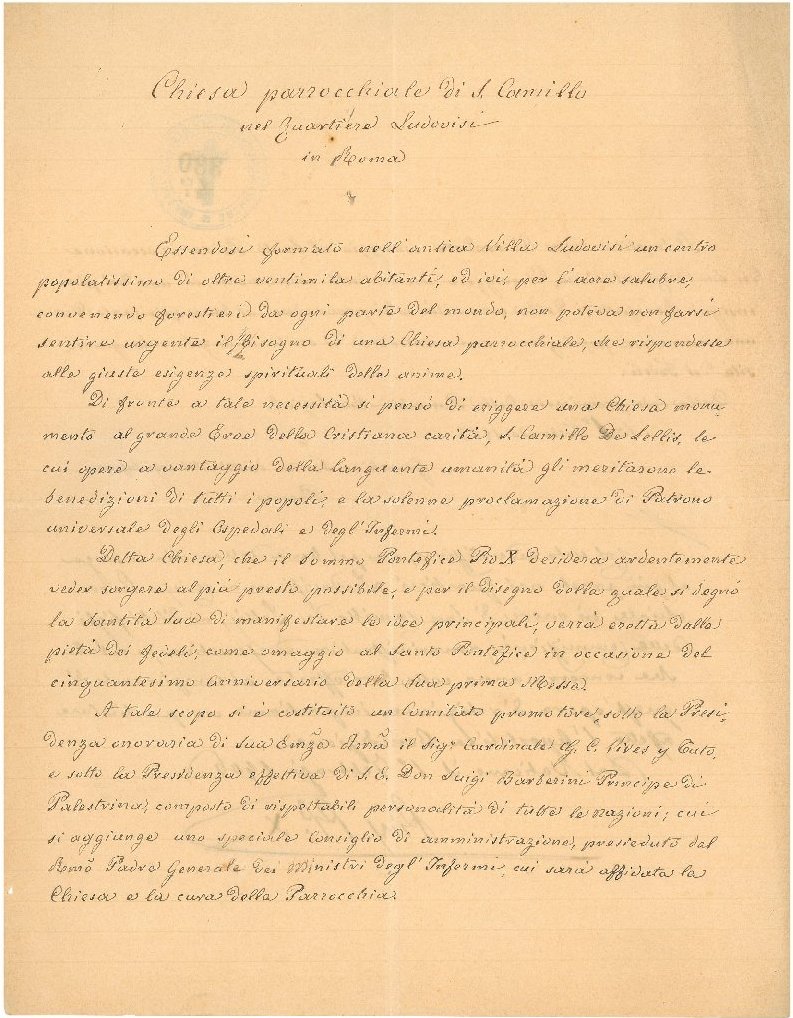 Chiesa parrocchiale di S. Camillo
nel Quartiere Ludovisi
in Roma
Essendosi formato nell'antica Villa Ludovisi un centro
popolatissimo di oltre ventimila abitanti, ed ivi, per l'aere salubre,
convenendo forestieri da ogni parte del mondo, non poteva non farsi
sentire urgente il bisogno di una Chiesa parrocchiale, che rispondesse
alle giuste esigenze spirituali delle anime.
Di fronte a tale necessità si pensò di eriggere una Chiesa monu-
mento al grande Eroe della Cristiana carità, S. Camillo De Lellis, le
cui opere a vantaggio della languente umanità gli meritarono le
benedizioni di tutti i popoli, e la solenne proclamazione di Patrono
universale degli Ospedali e degl'Infermi.
Detta Chiesa, che il Sommo Pontefice Pio X desidera ardentemente
veder sorgere al più presto possibile, e per il disegno della quale si degnò
la Santità Sua di manifestare le idee principali, verrà eretta dalla
pietà dei fedeli, come omaggio al Santo Pontefice in occasione del
cinquantesimo Anniversario della Sua prima Messa.
A tale scopo si è costituito un Comitato promotore sotto la Presi-
denza onoraria di Sua Emza Rma il Sig. Cardinale G. C. Vives y Tuto,
e sotto la Presidenza effettiva di S. E. Don Luigi Barberini Principe di
Palestrina, composto di rispettabili personalità di tutte le nazioni, cui
si aggiunge uno speciale Consiglio di amministrazione, presieduto dal
Rmo Padre Generale dei Ministri degl'Infermi, cui sarà affidata la
Chiesa e la cura della Parrocchia.